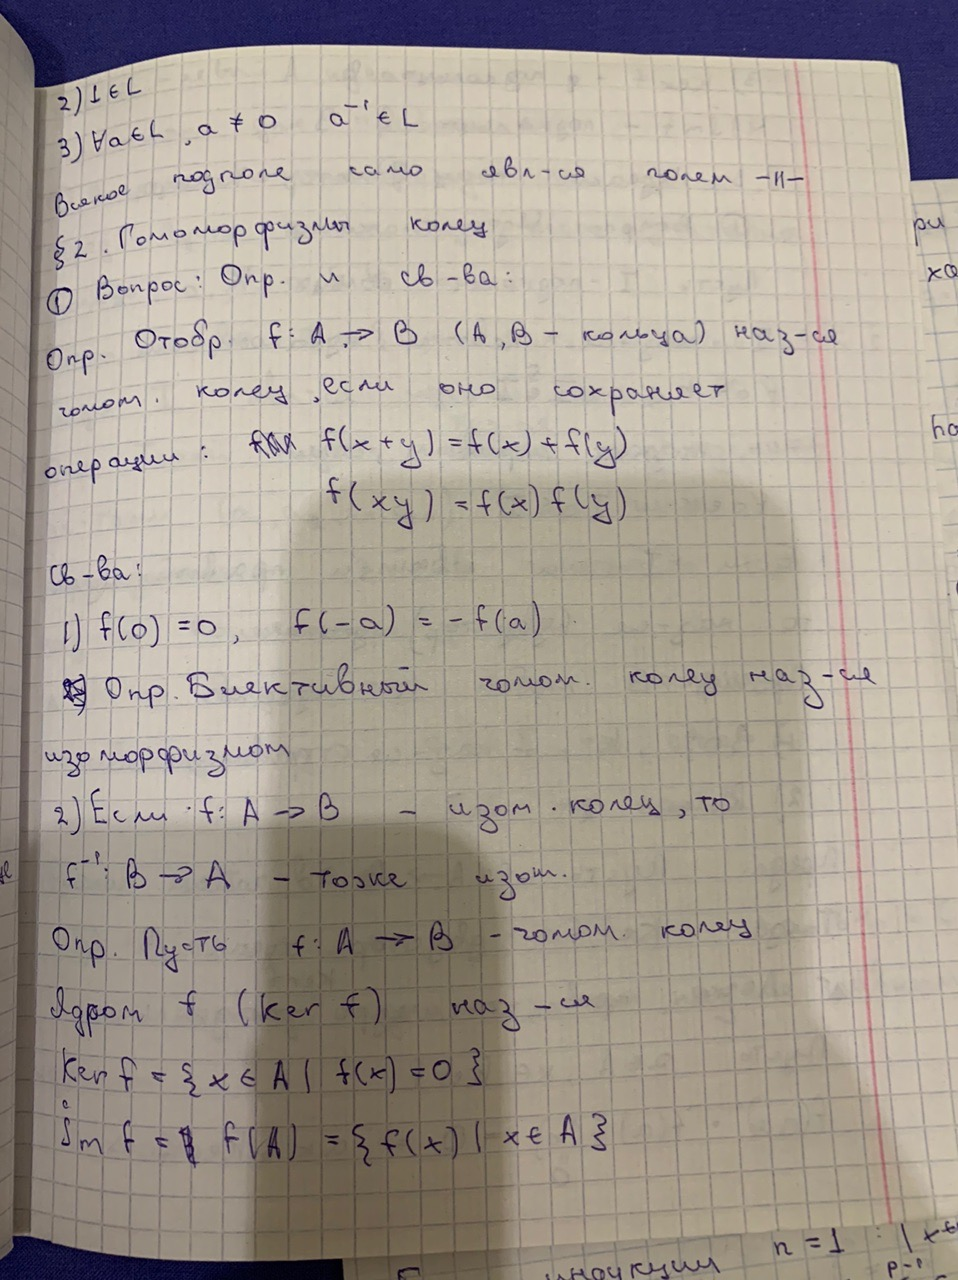 2) 1 ∈ L
3) ∀a ∈ L, a ≠ 0 a⁻¹ ∈ L
Всякое подполе само явл-ся полем -||-
§2. Гомоморфизмы колец
① Вопрос: Опр. и св-ва:
Опр. Отобр. f: A → B (A, B - кольца) наз-ся
гомом. колец, если оно сохраняет
операции: f(x+y) = f(x) + f(y)
f(xy) = f(x) f(y)
св-ва:
1) f(0) = 0, f(-a) = -f(a)
Опр. Биективный гомом. колец наз-ся
изоморфизмом
2) Если f: A → B - изом. колец, то
f⁻¹: B → A - тоже изом.
Опр. Пусть f: A → B - гомом. колец
Ядром f (Ker f) наз-ся
Ker f = { x ∈ A | f(x) = 0 }
Im f = f(A) = { f(x) | x ∈ A }
ри
индукции n = 1 :
p-1